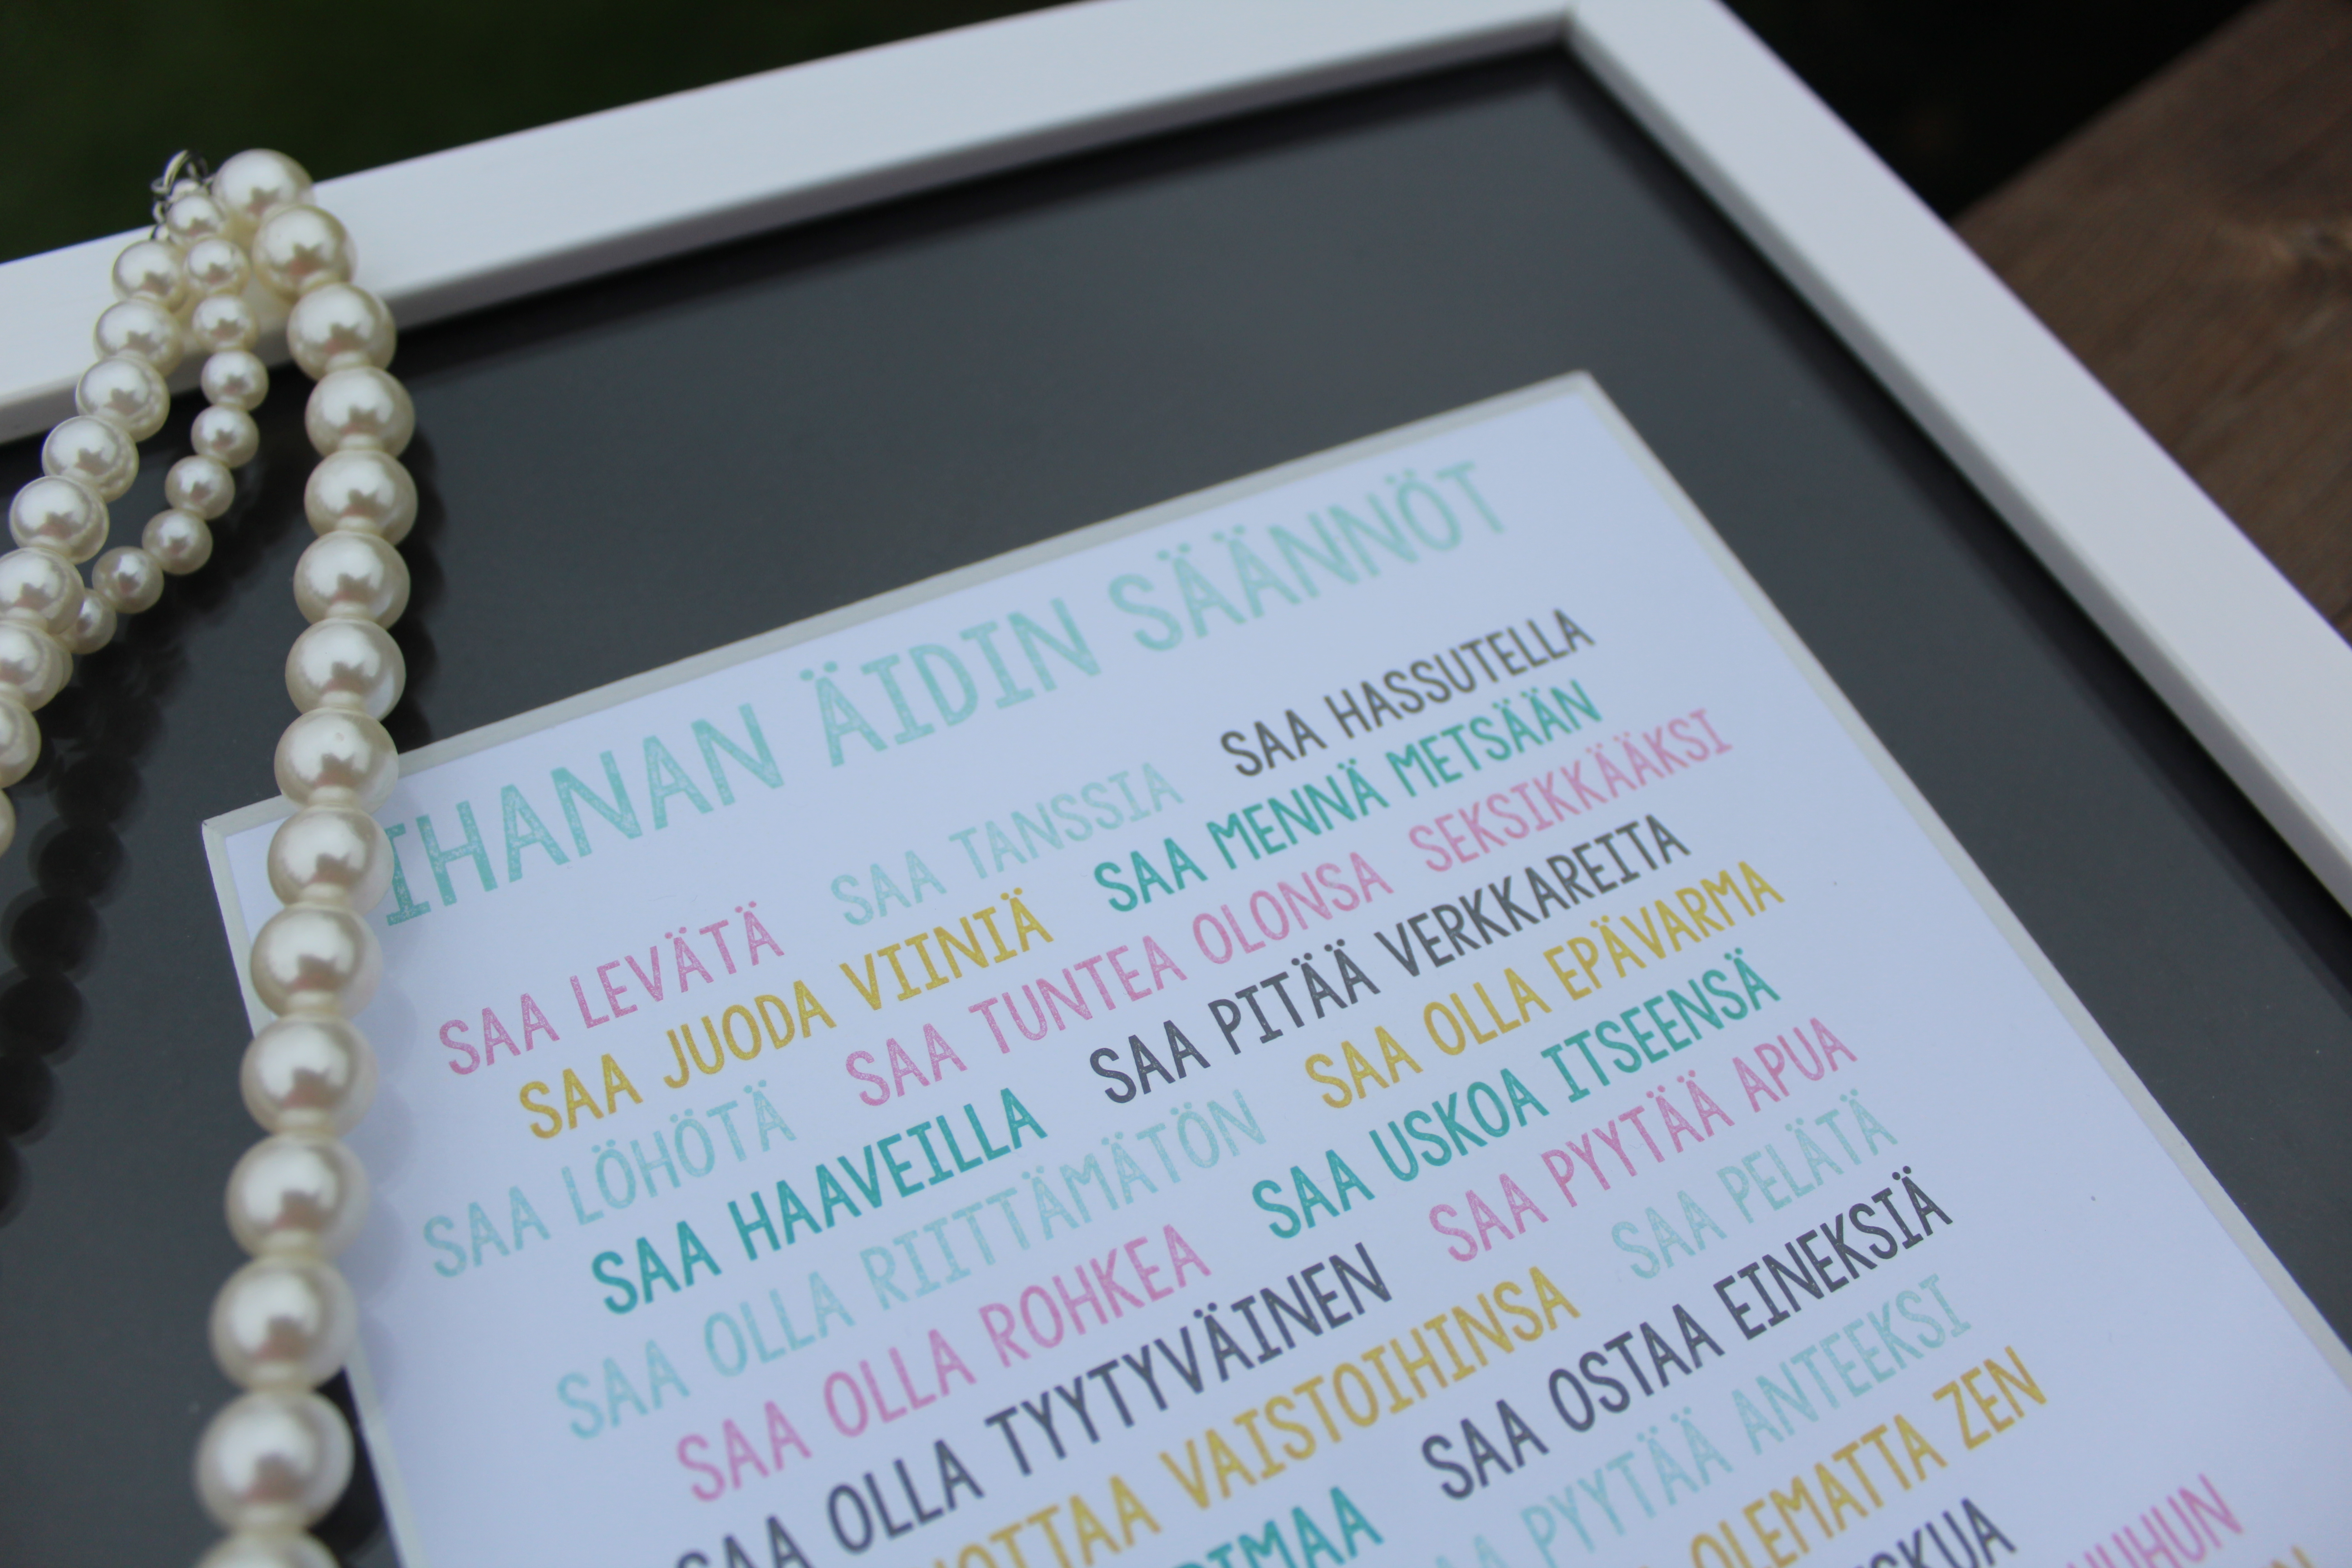 IHANAN ÄIDIN SÄÄNNÖT
SAA LEVÄTÄ SAA TANSSIA SAA HASSUTELLA
SAA JUODA VIINIÄ SAA MENNÄ METSÄÄN
SAA LÖHÖTÄ SAA TUNTEA OLONSA SEKSIKKÄÄKSI
SAA HAAVEILLA SAA PITÄÄ VERKKAREITA
SAA OLLA RIITTÄMÄTÖN SAA OLLA EPÄVARMA
SAA OLLA ROHKEA SAA USKOA ITSEENSÄ
SAA OLLA TYYTYVÄINEN SAA PYYTÄÄ APUA
VAISTOIHINSA SAA PELÄTÄ
SAA OSTAA EINEKSIÄ
PYYTÄÄ ANTEEKSI
OLEMATTA ZEN